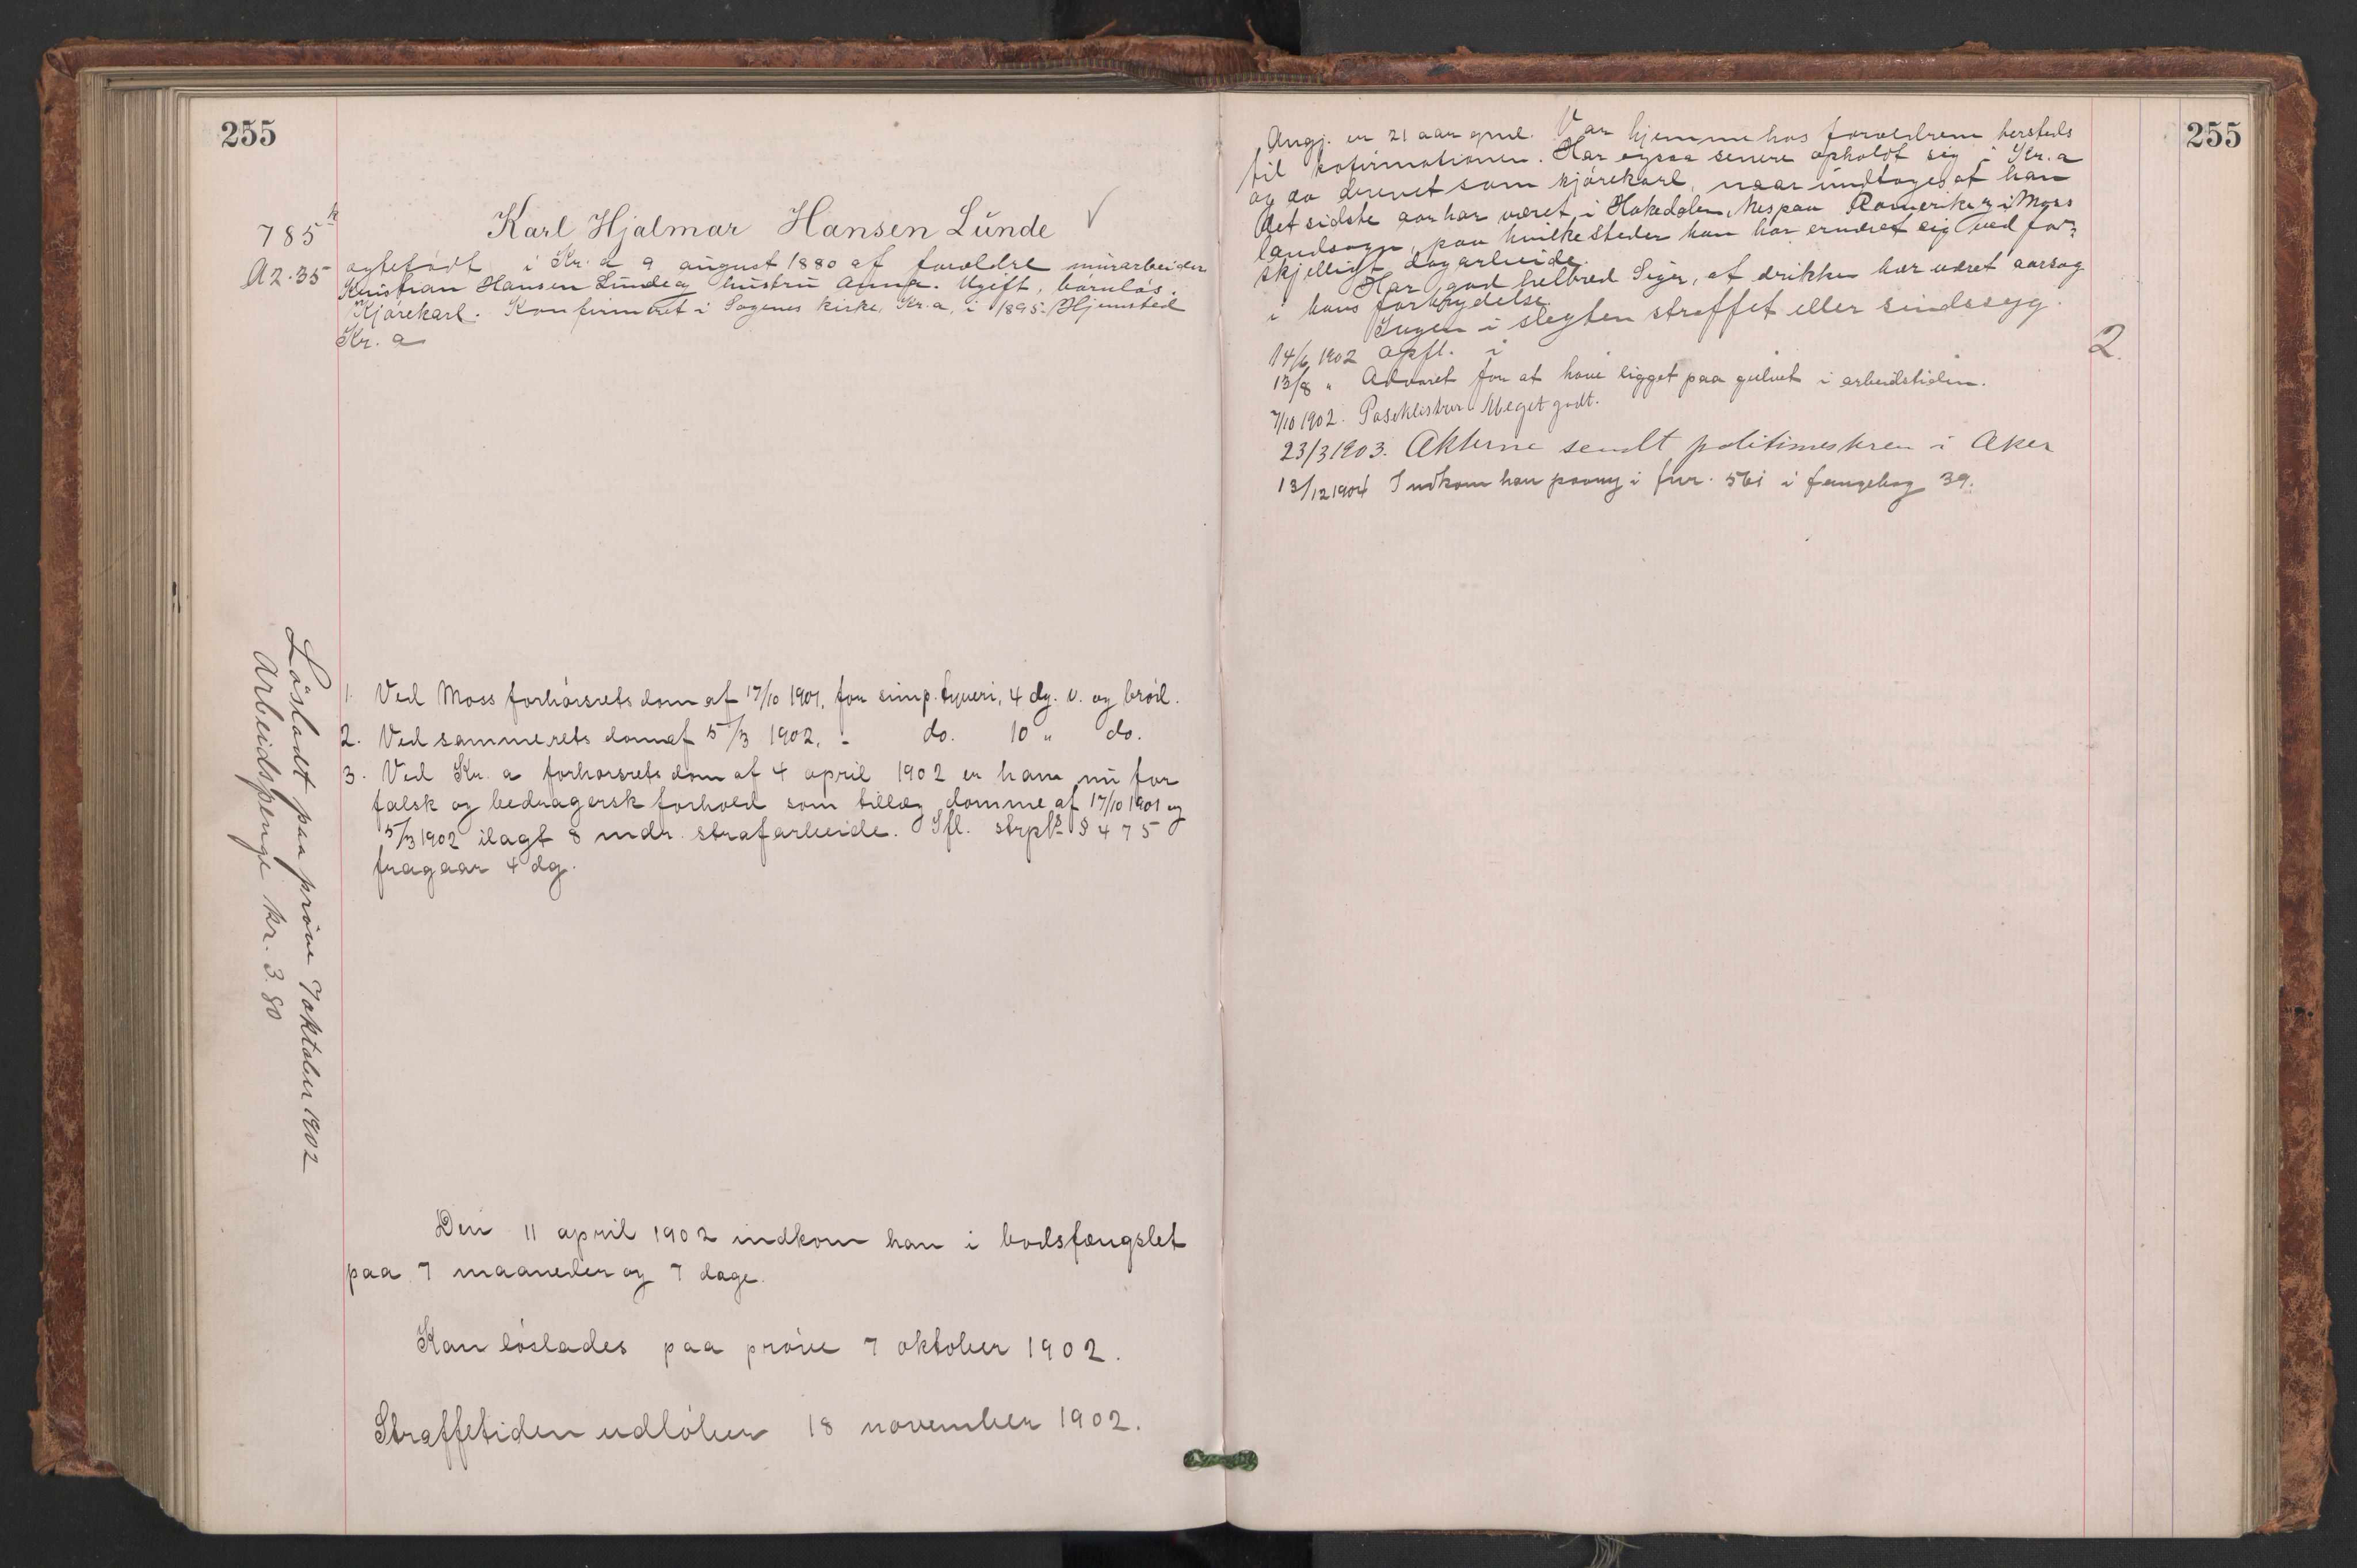 255
785 k
A2.35
Karl Hjalmar Hansen Lunde
ægtefødt i Kr.a 9 august 1880 af forældre murarbeider
Kristian Hansen Lunde og hustru Anna. Ugift, barnløs.
Kjørekarl. Konfirmeret i Sagenes kirke, Kr.a, i 1895. Hjemsted
Kr.a
Løsladt paa prøve 7 oktober 1902
Arbeidspenge kr. 3.80
1. Ved Moss forhørsrets dom af 17/10 1901, for simp. tyveri, 4 dg. v. og brød.
2. Ved sammerets dom af 5/3 1902, - do. 10 " do.
3. Ved Kr.a forhørsrets dom af 4 april 1902 er han nu for
falsk og bedragersk forhold som tillæg domme af 17/10 1901 og
5/3 1902 ilagt 8 mdr. strafarbeide. Ifl. strpl's § 475
fragaar 4 dg.
Den 11 april 1902 indkom han i bodsfængslet
paa 7 maaneder og 7 dage.
Kan løslades paa prøve 7 oktober 1902.
Straffetiden udløber 18 november 1902.
255
Angj. er 21 aar gml. Var hjemme hos forældrene hersteds
til kofirmationen. Har ogsaa senere opholdt sig i Kr.a
og da drevet som kjørekarl, naar undtages at han
det sidste aar har været i Hakedalen, Nes paa Romerike og i Moss
landsogn, paa hvilke steder han har ernæret sig ved for-
skjelligt dagarbeide.
Har god helbred. Siger, at drikken har været aarsag
i hans forbrydelse.
Ingen i slegten straffet eller sindssyg.
14/6 1902 opfl. i
2.
13/8 " Advaret for at have ligget paa gulvet i arbeidstiden.
7/10 1902. Meget godt.
23/3 1903. Akterne sendt politimesteren i Aker
13/12 1904 Indkom han paany i fnr. 561 i fangebog 39.